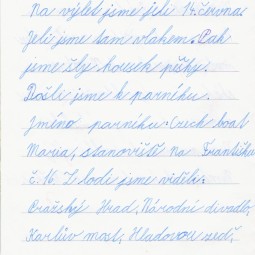 Na výlet jsme jeli 14. června.
Jeli jsme tam vlakem. Pak
jsme šly kousek pěšky.
Došli jsme k parníku.
Jméno parníku: Czech boat
Maria, stanoviště na Františku
č. 16. Z lodi jsme viděli:
Pražský Hrad, Národní divadlo,
Karlův most, Hladovou zeď,